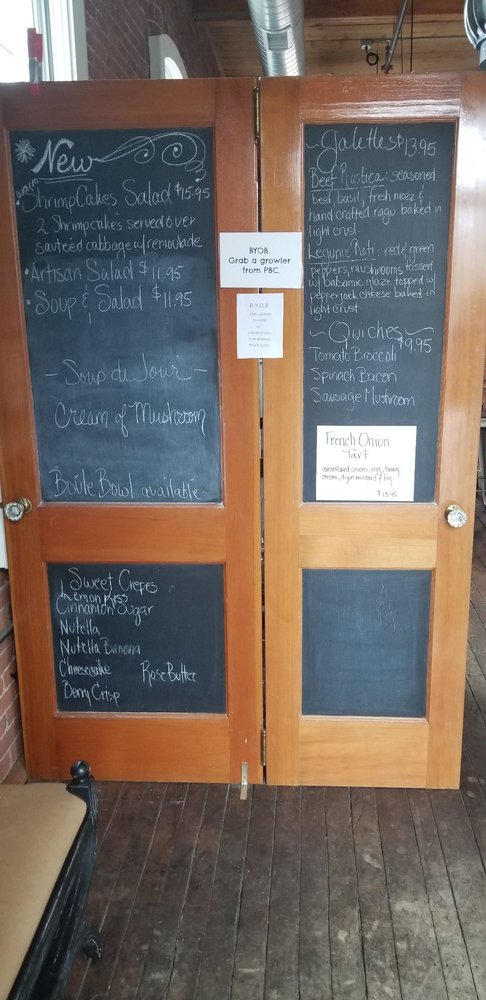 New
warm
Shrimp Cakes Salad $15.95
2 Shrimpcakes served over
sauteed cabbage w/ remoulade
• Artisan Salad $11.95
• Soup & Salad $11.95
- Soup du Jour -
Cream of Mushroom
Boule Bowl available
Sweet Crepes
Lemon Kiss
Cinnamon Sugar
Nutella
Nutella Banana
Cheesecake Rose Butter
Berry Crisp
BYOB.
Grab a growler
from PBC.
B.Y.O.B
Grab a growler
~Galettes $13.95
Beef Rustica: seasoned
beef, basil, fresh mozz &
hand crafted ragu baked in
light crust.
Legume Roti: red & green
peppers, mushrooms tossed
w/ balsamic glaze topped w/
pepperjack cheese baked in
light crust
~Quiches~
$9.95
Tomato Broccoli
Spinach Bacon
Sausage Mushroom
French Onion
Tart
caramelized onions, eggs, heavy
cream, dijon mustard &
$13.95